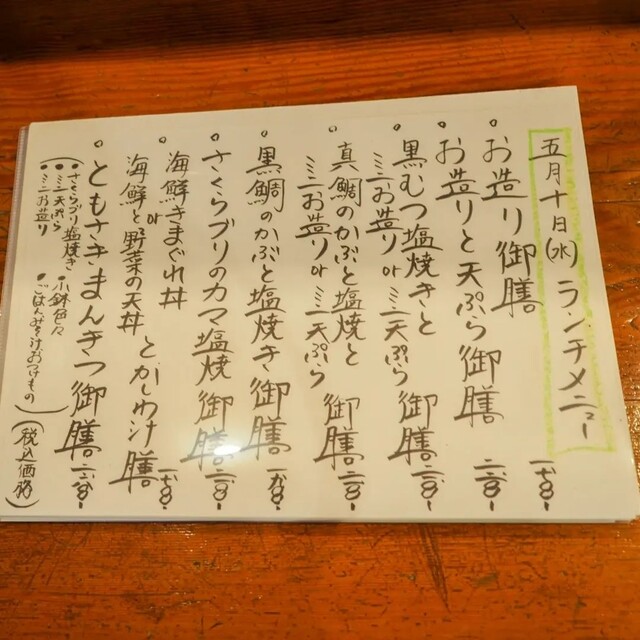 五月十日(水) ランチメニュー
。お造り御膳
。お造りと天ぷら御膳
。黒むつ塩焼きと
ミニお造り or ミニ天ぷら 御膳
。真鯛のかぶと塩焼と
ミニお造り or ミニ天ぷら 御膳
。黒鯛のかぶと塩焼き御膳
。さくらブリのカマ塩焼 御膳
。海鮮きまぐれ丼
or
海鮮と野菜の天丼 とかしわ汁 膳
。ともさきまんきつ御膳
(・さくらブリ塩焼き ・小鉢色々
・ミニ天ぷら ・ごはんみそ汁おつけもの
・ミニお造り)
(税込価格)